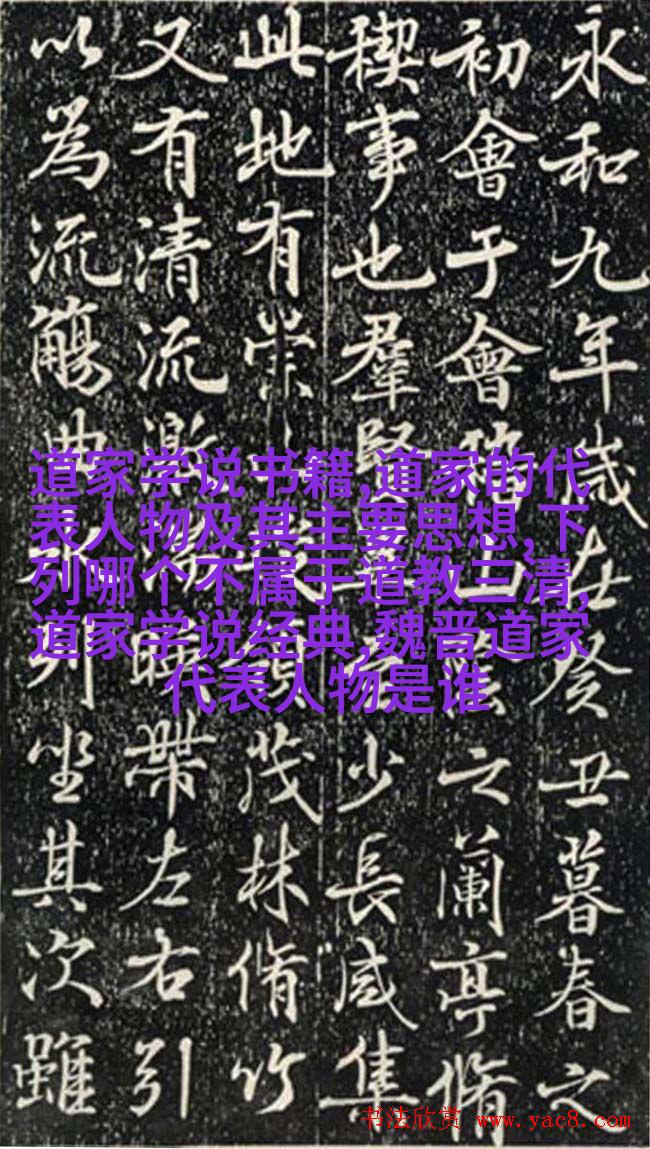 永和九年歲在癸丑暮春之
初會于會山之蘭亭脩
稧事也羣賢少長咸集
此地有崇茂林脩竹
又有清流激帶左右引
以為流觴曲列坐其次雖
道家学说书籍,道家的代
表人物及其主要思想,下
列哪个不属于道教三清,
道家学说经典,魏晋道家
代表人物是谁
书法欣赏 www.yac8.com